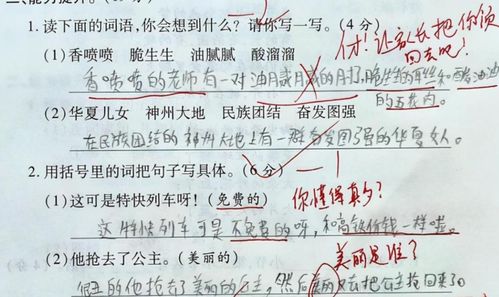 1.读下面的词语,你会想到什么?请你写一写。(4分)
(1)香喷喷 脆生生 油腻腻 酸溜溜
什!让家长把你领回去吧!
香喷喷的老师有一对油月感月感的月,脆生生的耳和酸油油的五花肉。
(2)华夏儿女 神州大地 民族团结 奋发图强
在民族团结的神州大地上有一群奋发图强的华夏女人。
2.用括号里的词把句子写具体。(6分)
(1)这可是特快列车呀!(免费的)
你懂得真多?
这特快列车可是不免费的呀,和高铁价钱一样啦。
(2)他抢去了公主。(美丽的)
美丽是谁?
假丑的他抢去了美丽的公主,然后美丽又去把公主抢回来了